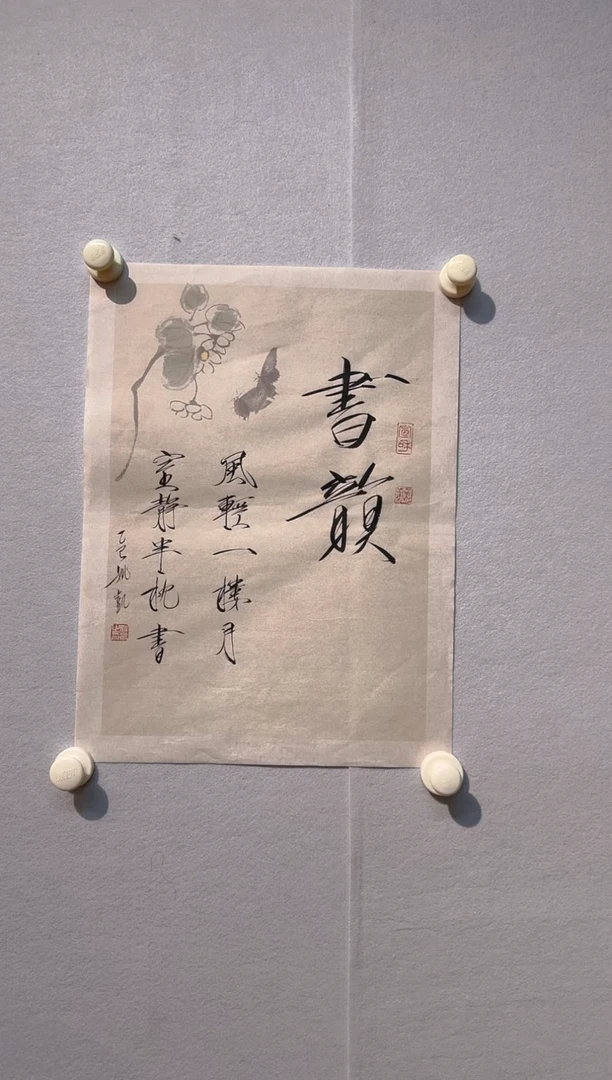 書韻
風輕一樓月
室静半枕書
乙巳姚凱